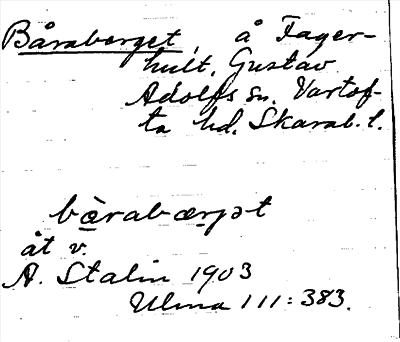 Båraberget, å Fager-
hult, Gustav
Adolfs sn. Vartof-
ta hd. Skarab. l.
bàrabærjət
åt v.
A. Stalin 1903
Ulma 111:383.